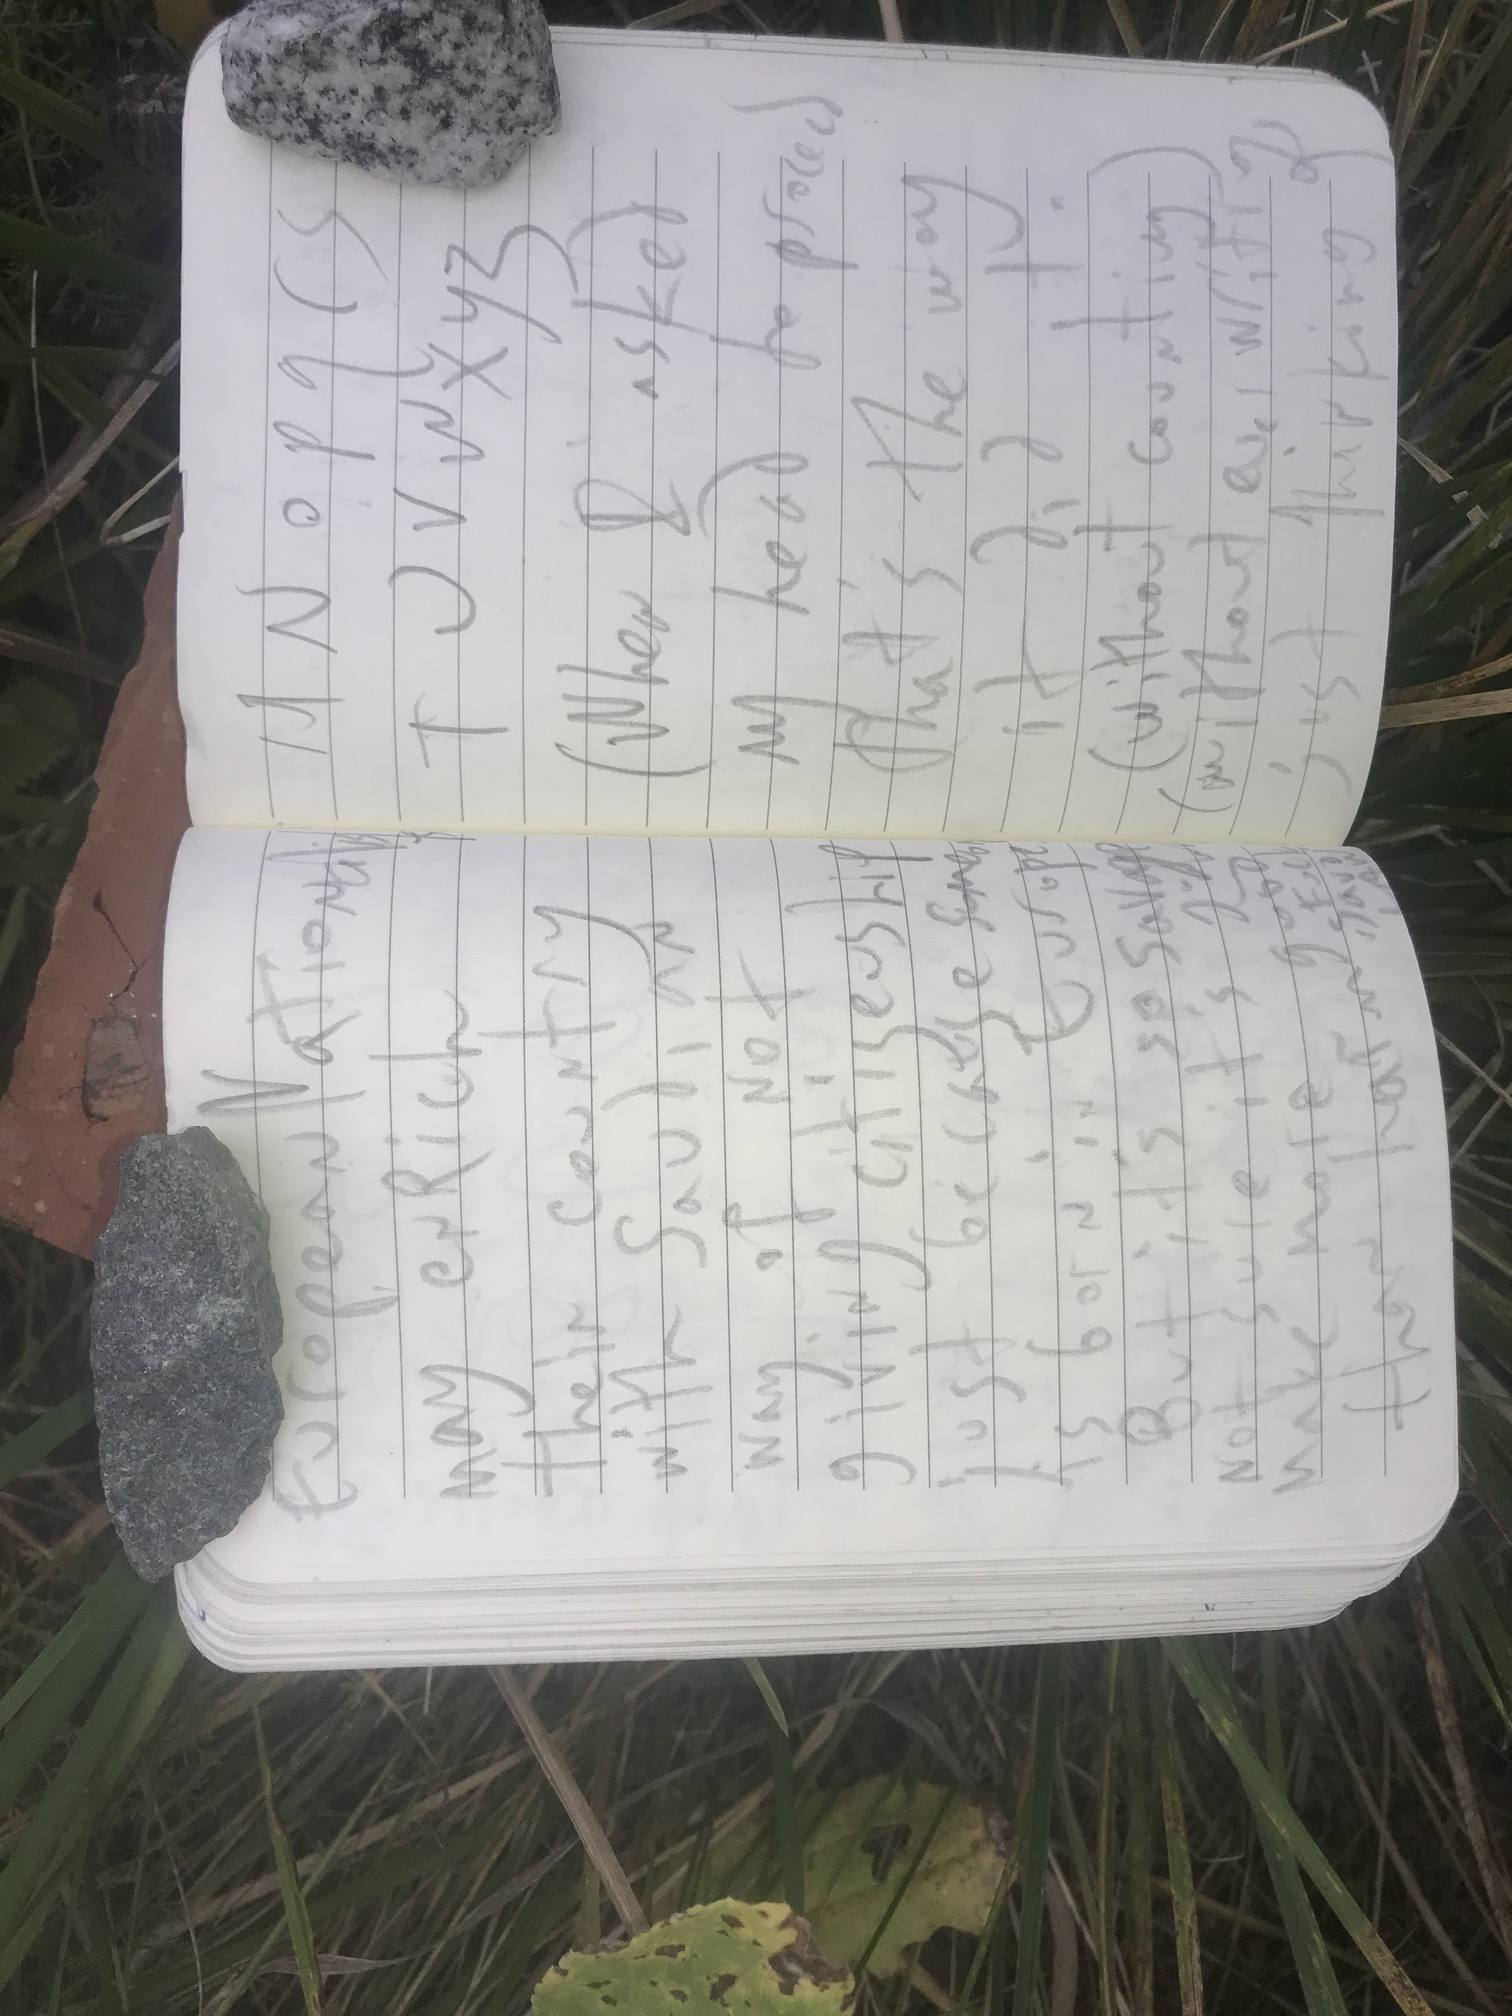 European Nationality
may enRich
their country
with Saudi an
way of Not
giving citiseship
just because Some
is born in Europe
But it's so Salva
Not sure it's 2
make more good
than harm
M N o p q r s
T U V W X y z
(When I asked
my head to proceed
that's the way
it did it.
(without counting)
(without even writing
just thinking of